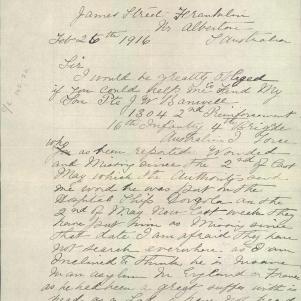 James Street Franklin
Nr Alberton
Feb 26th 1916 S Australia
Sir
I would be greatly obliged
if you could help me to find My
Son Pte J. W. Banwell
1304 2nd Reinforcement
16th Infantry 4th Brigde
Australian Force
who as been reported Wounded
and Missing since the 2nd of last
May which the Authority sent
me word he was put on the
Hospital Ship on the
2nd of May Now last week they
have put him as Missing since
that date I am afraid they have
not search everwhere as I am
Inclined to think he is Insane
in an asylum in England or France
as he had been a great suffer with is
head as a